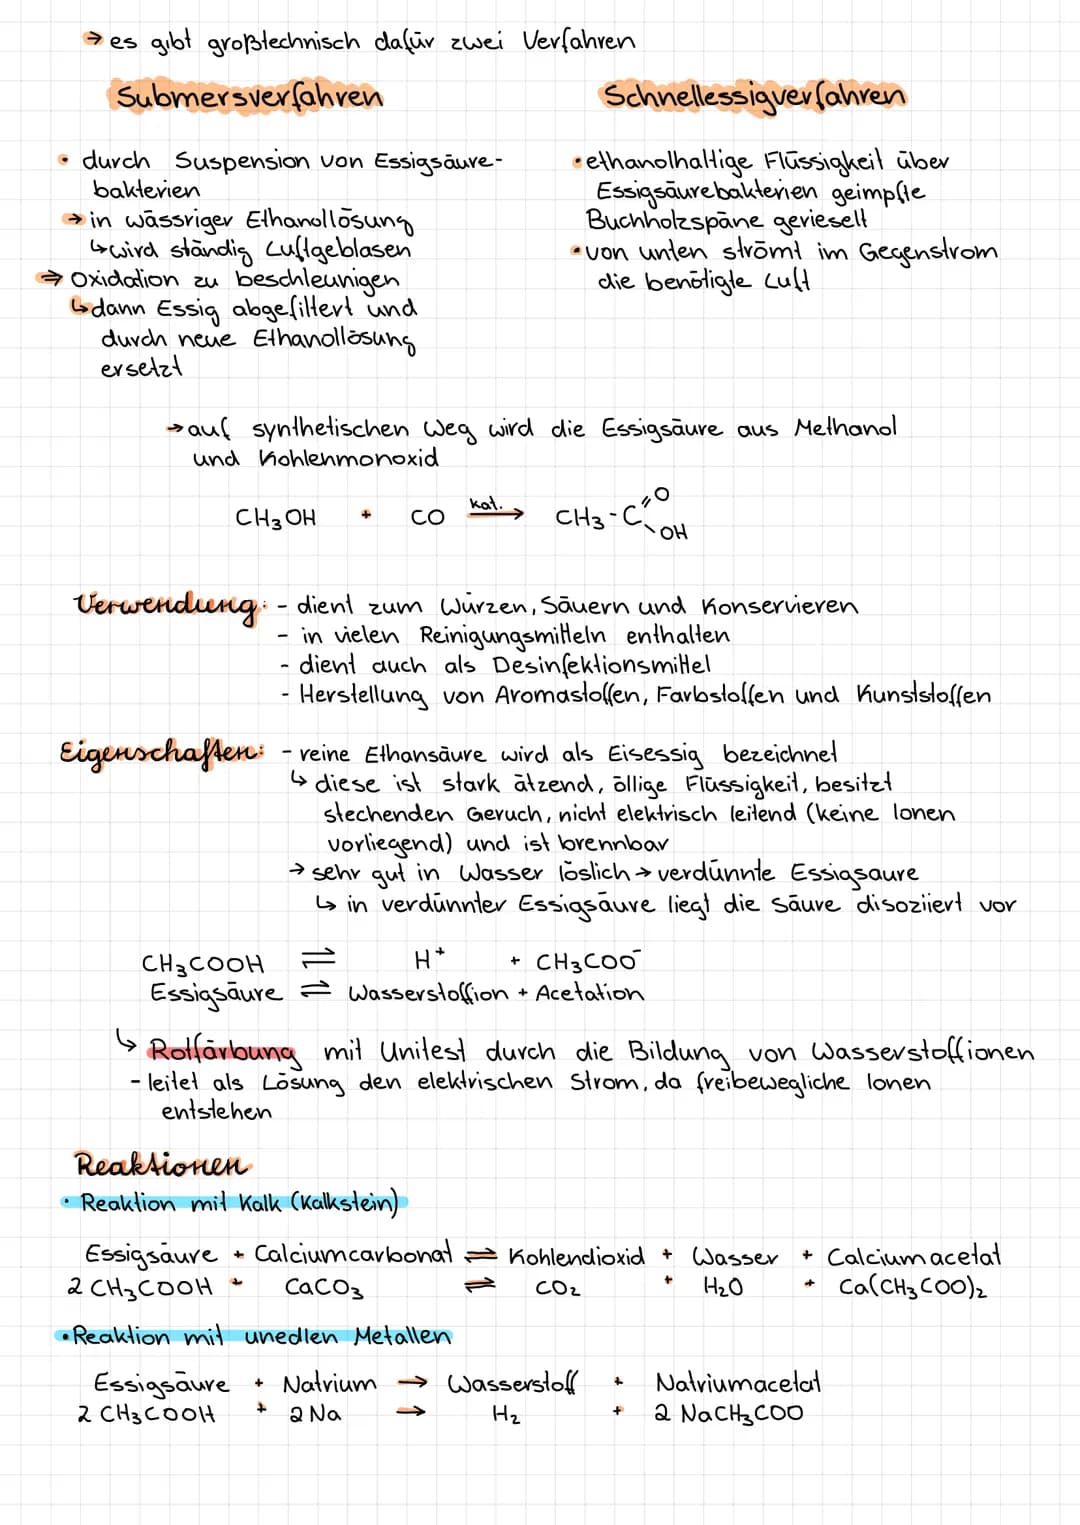 → es gibt großtechnisch dafür zwei Verfahren
Submersverfahren
• durch Suspension von Essigsäure-
bakterien
→ in wässriger Ethanollösung
↳ wird ständig Luftgeblasen
⇒ Oxidation zu beschleunigen
↳ dann Essig abgefiltert und
durch neue Ethanollösung
ersetzt
Schnellessigverfahren
• ethanolhaltige Flüssigkeit über
Essigsäurebakterien geimpfte
Buchholzspäne gerieselt
• von unten strömt im Gegenstrom
die benötigte Luft
→ auf synthetischen Weg wird die Essigsäure aus Methanol
und Kohlenmonoxid
CH₃OH + CO kat.→ CH₃-C=O
OH
Verwendung: - dient zum Würzen, Säuern und Konservieren
- in vielen Reinigungsmitteln enthalten
- dient auch als Desinfektionsmittel
- Herstellung von Aromastoffen, Farbstoffen und Kunststoffen
Eigenschaften: - reine Ethansäure wird als Eisessig bezeichnet
↳ diese ist stark ätzend, öllige Flüssigkeit, besitzt
stechenden Geruch, nicht elektrisch leitend (keine Ionen
vorliegend) und ist brennbar
→ sehr gut in Wasser löslich → verdünnte Essigsaure
↳ in verdünnter Essigsäure liegt die Säure disoziiert vor
CH₃COOH ⇌ H⁺ + CH₃COO⁻
Essigsäure ⇌ Wasserstoffion + Acetation
↳ Rotfärbung mit Unitest durch die Bildung von Wasserstoffionen
- leitet als Lösung den elektrischen Strom, da freibewegliche Ionen
entstehen
Reaktionen
• Reaktion mit Kalk (Kalkstein)
Essigsäure + Calciumcarbonat ⇌ Kohlendioxid + Wasser + Calciumacetat
2 CH₃COOH + CaCO₃ ⇌ CO₂ + H₂O + Ca(CH₃COO)₂
• Reaktion mit unedlen Metallen
Essigsäure + Natrium → Wasserstoff + Natriumacetat
2 CH₃COOH + 2 Na → H₂ + 2 NaCH₃COO